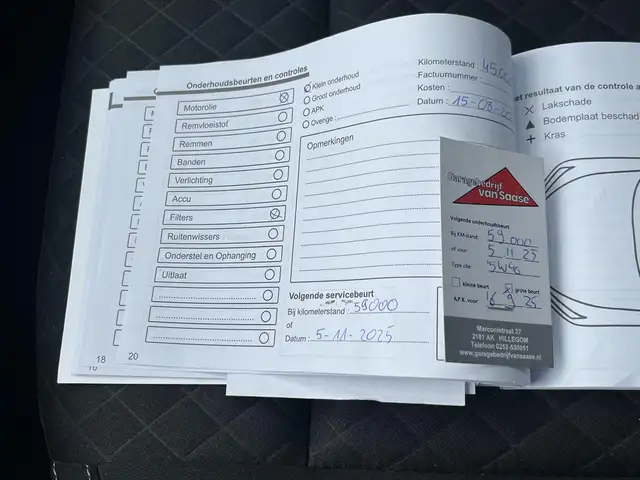 Onderhoudsbeurten en controles
Motorolie
Remvloeistof
Remmen
Banden
Verlichting
Accu
Filters
Ruitenwissers
Onderstel en Ophanging
Uitlaat
18
20
Klein onderhoud
Groot onderhoud
APK
Overige :
Kilometerstand :
Factuurnummer :
Kosten :
Datum : 15-08-
Opmerkingen
Volgende servicebeurt
Bij kilometerstand : 59000
of
Datum : 5-11-2025
Garagebedrijf
van Saase
Volgende onderhoudsbeurt
Bij KM-stand: 59000
of voor: 5 11 25
Type olie: 5W40
kleine beurt
grote beurt
A.P.K. voor: 16 9 25
Marconistraat 37
2181 AK HILLEGOM
Telefoon 0252-530051
www.garagebedrijfvansaase.nl
et resultaat van de controle a
Lakschade
Bodemplaat beschad
Kras